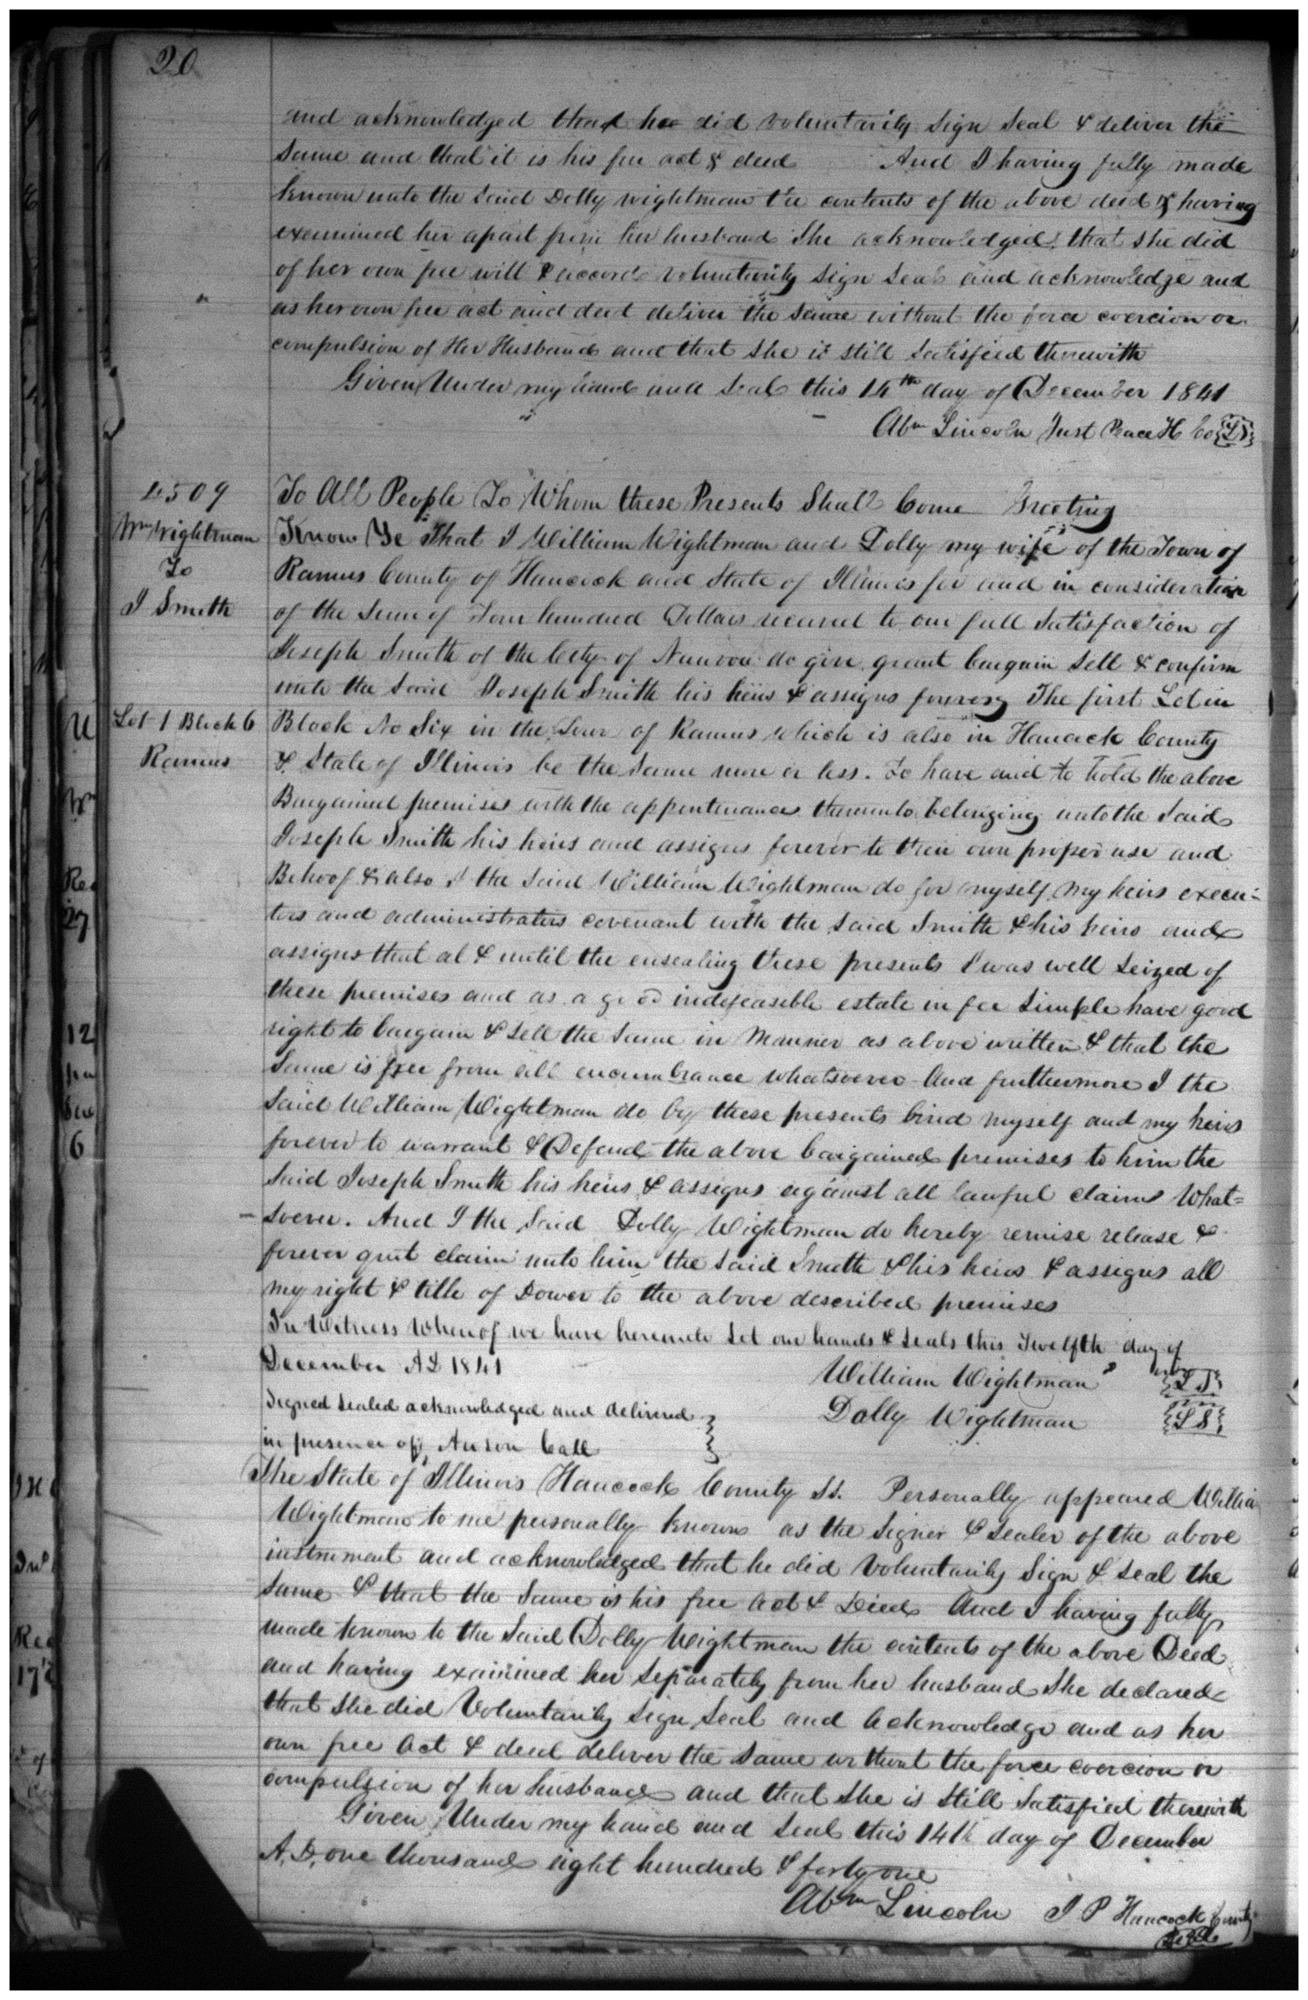 20
and acknowledged that he did voluntarily sign seal & deliver the
same and that it is his free act & deed And I having fully made
known unto the said Dolly wightman the contents of the above deed & having
examined her apart from her husband she acknowledged that she did
of her own free will & accord voluntarily sign seal and acknowledge and
as her own free act and deed deliver the same without the force coercion or
compulsion of Her Husband and that she is still satisfied therewith
Given Under my hand and seal this 14th day of December 1841
Abm Lincoln Just Peace H Co {LS}
4509
Wm Wightman
To
J Smith
To All People To Whom these Presents Shall Come Greeting
Know Ye That I William Wightman and Dolly my wife of the Town of
Ramus County of Hancock and State of Illinois for and in consideration
of the sum of Four hundred Dollars secured to our full satisfaction of
Joseph Smith of the City of Nauvoo do give grant bargain sell & confirm
unto the said Joseph Smith his heirs & assigns forever The first Lot in
Lot 1 Block 6
Ramus
Block No Six in the Town of Ramus which is also in Hancock County
& State of Illinois be the same more or less. To have and to hold the above
Bargained premises with the appertenances thereunto belonging unto the said
Joseph Smith his heirs and assigns forever to their own proper use and
Behoof & also I the said William Wightman do for myself my heirs execu-
tors and administrators covenant with the said Smith & his heirs and
assigns that at & until the ensealing these presents I was well seized of
these premises and as a good indefeasible estate in fee simple have good
right to bargain & sell the same in Manner as above written & that the
same is free from all encumbrance whatsoever And furthermore I the
said William Wightman do by these presents bind myself and my heirs
forever to warrant & Defend the above bargained premises to him the
said Joseph Smith his heirs & assigns against all lawful claims what=
soever. And I the said Dolly Wightman do hereby remise release &
forever quit claim unto him the said Smith & his heirs & assigns all
my right & title of Dower to the above described premises
In Witness Whereof we have hereunto set our hands & seals this Twelfth day of
December AD 1841
William Wightman {LS}
Signed sealed acknowledged and delivered
Dolly Wightman {LS}
in presence of, Anson Call
The State of Illinois Hancock County SS. Personally appeared William
Wightman to me personally known as the signer & sealer of the above
instrument and acknowledged that he did voluntarily sign & seal the
same & that the same is his free act & Deed And I having fully
made known to the said Dolly Wightman the contents of the above Deed
and having examined her separately from her husband she declared
that she did Voluntarily sign seal and acknowledge and as her
own free act & deed deliver the same without the force coercion or
compulsion of her husband and that she is still satisfied therewith
Given Under my hand and seal this 14th day of December
A.D. one thousand eight hundred & forty one
Abm Lincoln J P Hancock County
Seal